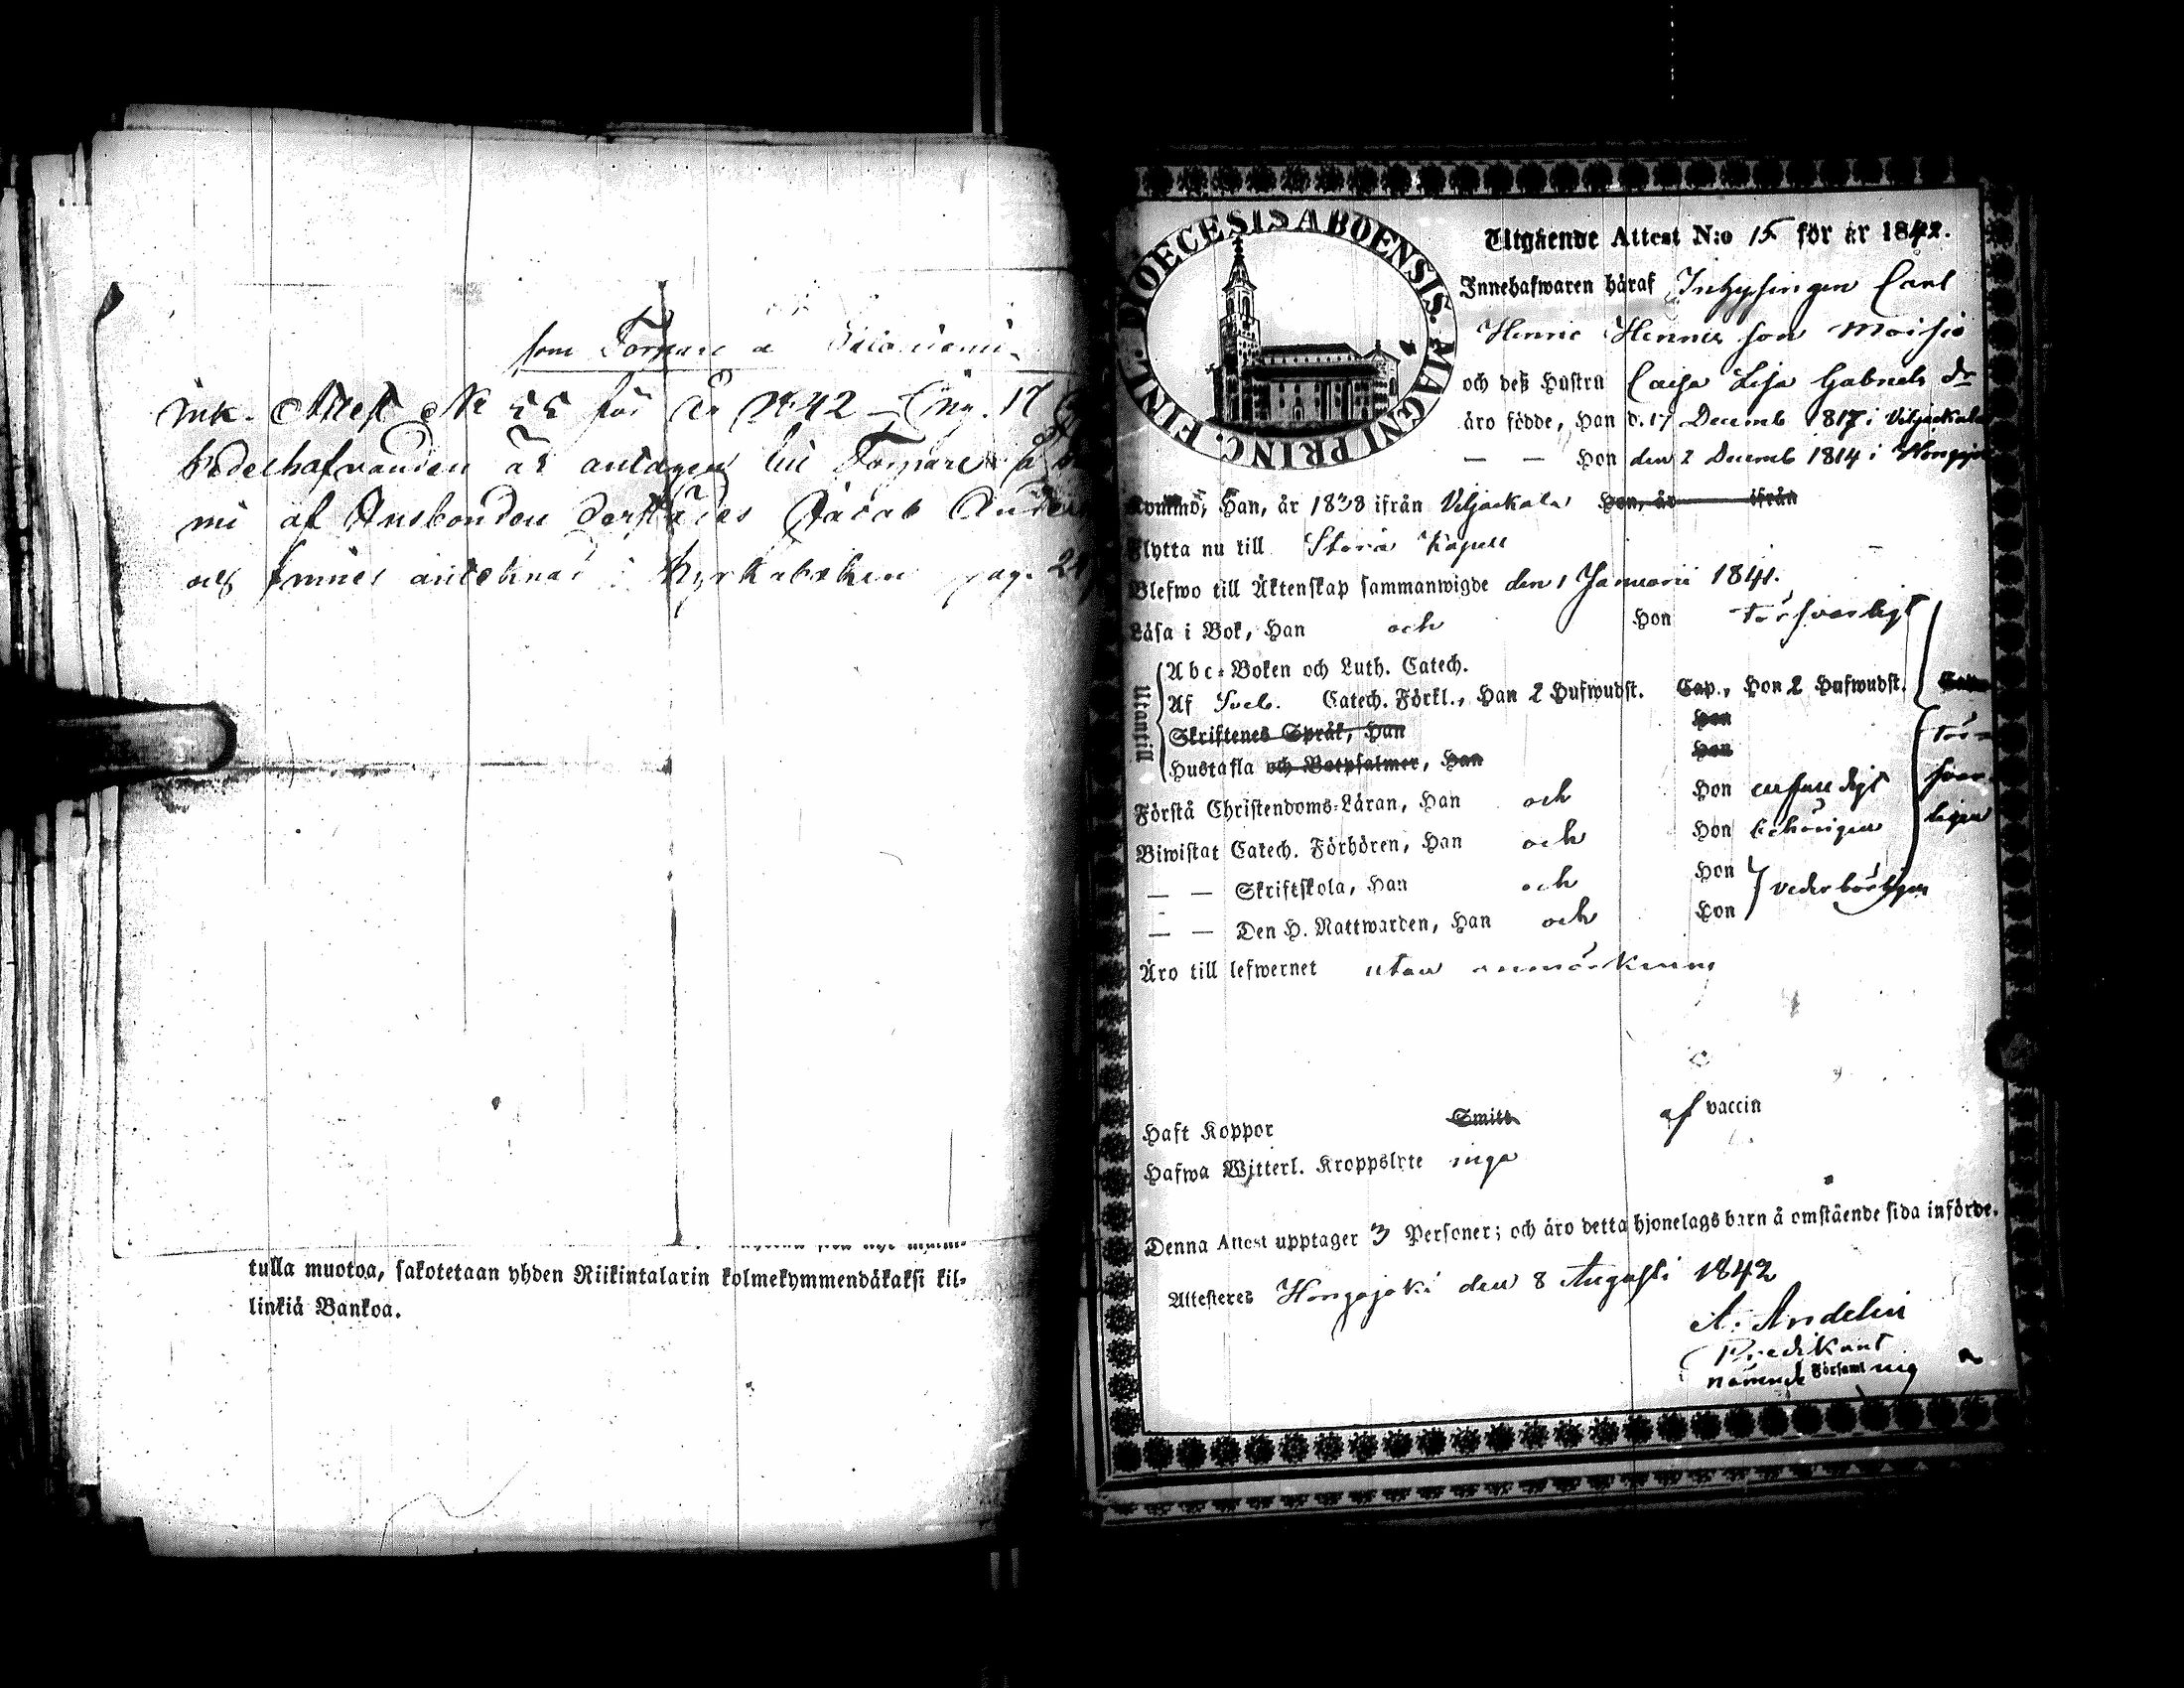 som Torpare a
ink. Attest No 55 för år 1842 – Ing. 17
Bderhafvanden är antagen till Torpare å
mi af Rusbonden derstädes Jacob Anders
och finnes antecknad i Kyrkoboken pag. 21
tulla muotoa, sakotetaan yhden Riikintalarin kolmekymmendäkaksi kil-
linkiä Bankoa.
DIOECESIS ABOENSIS. MAGNI PRINC. FINL.
Utgående Attest N:o 15 för år 1842.
Innehafwaren häraf Inhysingen Carl
Henric Henrics son Moisio
och deß Hustru Caisa Lisa Gabriels dr
äro födde, Han d. 17 Decemb 1817 i Viljackala
— — Hon den 2 Decemb 1814 i Hongojo
Komino, Han, år 1838 ifrån Viljackala Hon, år ifrån
Flytta nu till Storå Kapell
Blefwo till Äktenskap sammanwigde den 1 Januarii 1841.
Läsa i Bok, Han och Hon försvarligt
Utantill
Abc-Boken och Luth. Catech.
Af Sveb. Catech. Förkl., Han 2 Hufwudst. Cap., Hon 2 Hufwudst.
Skriftenes Språk, Han Hon för-
Hustafla och Botpsalmer, Han Hon
Förstå Christendoms-Läran, Han och Hon enfalldigt svar-
Biwistat Catech. Förhören, Han och Hon behörigen ligen
— — Skriftskola, Han och Hon
— — Den H. Nattwarden, Han och Hon vederbörligen
Äro till lefwernet utan anmärkning
Haft Koppor Smitt. af vaccin
Hafwa Witterl. Kroppslyte inga
Denna Attest upptager 3 Personer; och äro detta hjonelags barn å omstående sida införde.
Attesteres Hongojoki den 8 Augusti 1842
A. Andelin
Predikant
Församl